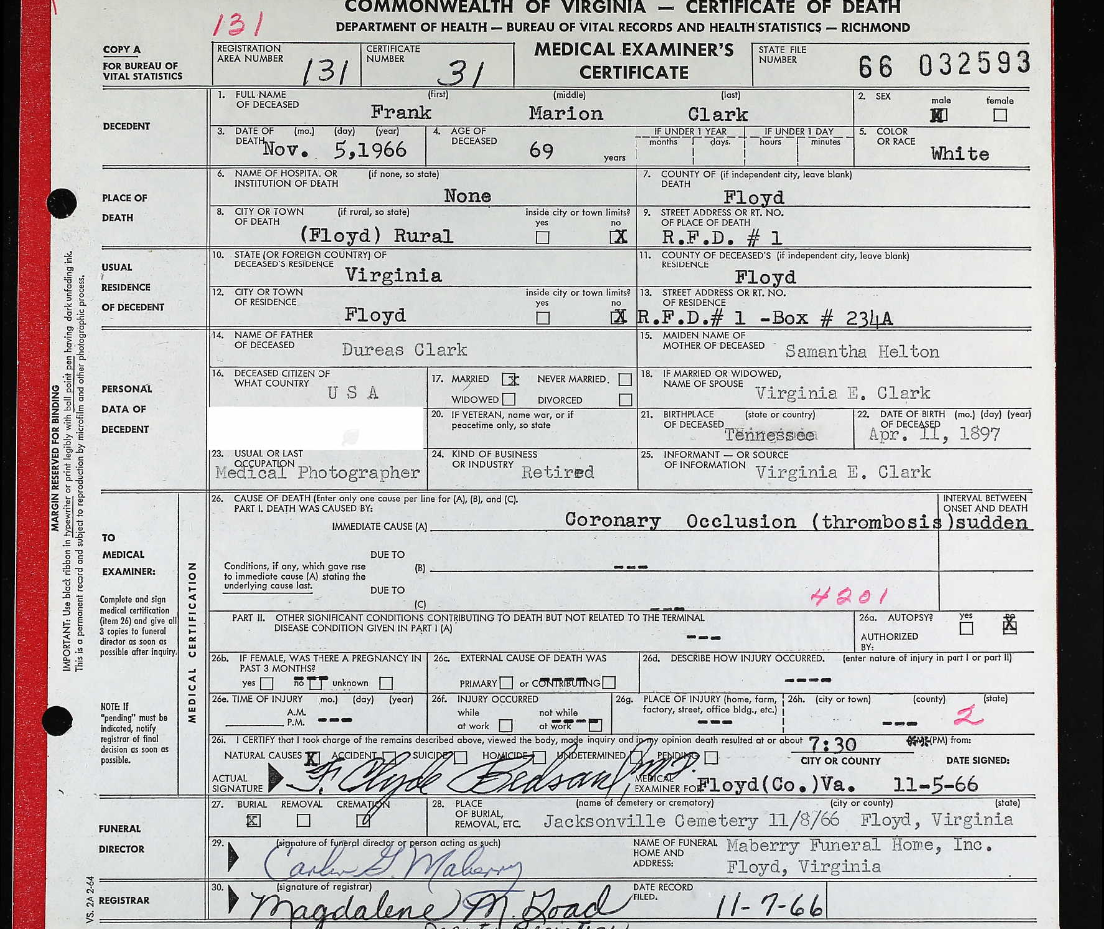 COMMONWEALTH OF VIRGINIA — CERTIFICATE OF DEATH
DEPARTMENT OF HEALTH — BUREAU OF VITAL RECORDS AND HEALTH STATISTICS — RICHMOND
131
COPY A
FOR BUREAU OF
VITAL STATISTICS
REGISTRATION
AREA NUMBER 131
CERTIFICATE
NUMBER 31
MEDICAL EXAMINER'S
CERTIFICATE
STATE FILE
NUMBER 66 032593
DECEDENT
1. FULL NAME OF DECEASED (first) (middle) (last)
Frank Marion Clark
2. SEX male female
X
3. DATE OF DEATH (mo.) (day) (year)
Nov. 5,1966
4. AGE OF DECEASED
69 years
IF UNDER 1 YEAR months days.
IF UNDER 1 DAY hours minutes
5. COLOR OR RACE
White
PLACE OF
DEATH
6. NAME OF HOSPITA. OR INSTITUTION OF DEATH (if none, so state)
None
7. COUNTY OF DEATH (if independent city, leave blank)
Floyd
8. CITY OR TOWN OF DEATH (if rural, so state)
(Floyd) Rural
inside city or town limits?
yes no X
9. STREET ADDRESS OR RT. NO. OF PLACE OF DEATH
R.F.D. # 1
USUAL
RESIDENCE
OF DECEDENT
10. STATE (OR FOREIGN COUNTRY) OF DECEASED'S RESIDENCE
Virginia
11. COUNTY OF DECEASED'S RESIDENCE (if independent city, leave blank)
Floyd
12. CITY OR TOWN OF RESIDENCE
Floyd
inside city or town limits?
yes no X
13. STREET ADDRESS OR RT. NO. OF RESIDENCE
R.F.D.# 1 -Box # 234A
PERSONAL
DATA OF
DECEDENT
14. NAME OF FATHER OF DECEASED
Dureas Clark
15. MAIDEN NAME OF MOTHER OF DECEASED
Samantha Helton
16. DECEASED CITIZEN OF WHAT COUNTRY
U S A
17. MARRIED X NEVER MARRIED.
WIDOWED DIVORCED
18. IF MARRIED OR WIDOWED, NAME OF SPOUSE
Virginia E. Clark
20. IF VETERAN, name war, or if peacetime only, so state
21. BIRTHPLACE OF DECEASED (state or country)
Tennessee
22. DATE OF BIRTH OF DECEASED (mo.) (day) (year)
Apr. 11, 1897
23. USUAL OR LAST OCCUPATION
Medical Photographer
24. KIND OF BUSINESS OR INDUSTRY
Retired
25. INFORMANT — OR SOURCE OF INFORMATION
Virginia E. Clark
TO
MEDICAL
EXAMINER:
Complete and sign
medical certification
(item 26) and give all
3 copies to funeral
director as soon as
possible after inquiry.
NOTE: IF
"pending" must be
indicated, notify
registrar of final
decision as soon as
possible.
MEDICAL CERTIFICATION
26. CAUSE OF DEATH (Enter only one cause per line for (A), (B), and (C).
PART I. DEATH WAS CAUSED BY:
INTERVAL BETWEEN ONSET AND DEATH
IMMEDIATE CAUSE (A) Coronary Occlusion (thrombosis)sudden
DUE TO
Conditions, if any, which gave rise
to immediate cause (A) stating the
underlying cause last.
(B) ---
DUE TO
(C) ---
4201
PART II. OTHER SIGNIFICANT CONDITIONS CONTRIBUTING TO DEATH BUT NOT RELATED TO THE TERMINAL
DISEASE CONDITION GIVEN IN PART I (A)
---
26a. AUTOPSY? yes X
AUTHORIZED
BY:
26b. IF FEMALE, WAS THERE A PREGNANCY IN PAST 3 MONTHS?
yes no unknown
26c. EXTERNAL CAUSE OF DEATH WAS
PRIMARY or CONTRIBUTING
26d. DESCRIBE HOW INJURY OCCURRED. (enter nature of injury in part I or part II)
----
26e. TIME OF INJURY mo.) (day) (year)
A.M.
P.M. ---
26f. INJURY OCCURRED
while at work not while at work
26g. PLACE OF INJURY (home, farm, factory, street, office bldg., etc.)
---
26h. (city or town) (county) (state)
--- 2
26i. I CERTIFY that I took charge of the remains described above, viewed the body, made inquiry and in my opinion death resulted at or about 7:30 (PM) from:
NATURAL CAUSES X ACCIDENT SUICIDE HOMICIDE UNDETERMINED PENDING
CITY OR COUNTY DATE SIGNED:
ACTUAL
SIGNATURE F. Clyde Bedsaul M.D.
MEDICAL
EXAMINER FOR Floyd(Co.)Va. 11-5-66
FUNERAL
DIRECTOR
27. BURIAL REMOVAL CREMATION
X
28. PLACE OF BURIAL, REMOVAL, ETC. (name of cemetery or crematory) (city or county) (state)
Jacksonville Cemetery 11/8/66 Floyd, Virginia
29. (signature of funeral director or person acting as such)
NAME OF FUNERAL
HOME AND
ADDRESS:
Maberry Funeral Home, Inc.
Floyd, Virginia
REGISTRAR
30. (signature of registrar)
Magdalene M. Goad
DATE RECORD
FILED. 11-7-66
MARGIN RESERVED FOR BINDING
IMPORTANT: Use black ribbon in typewriter or print legibly with ball point pen having dark unfading ink.
This is a permanent record and subject to reproduction by microfilm and other photographic process.
VS. 2A 2-64